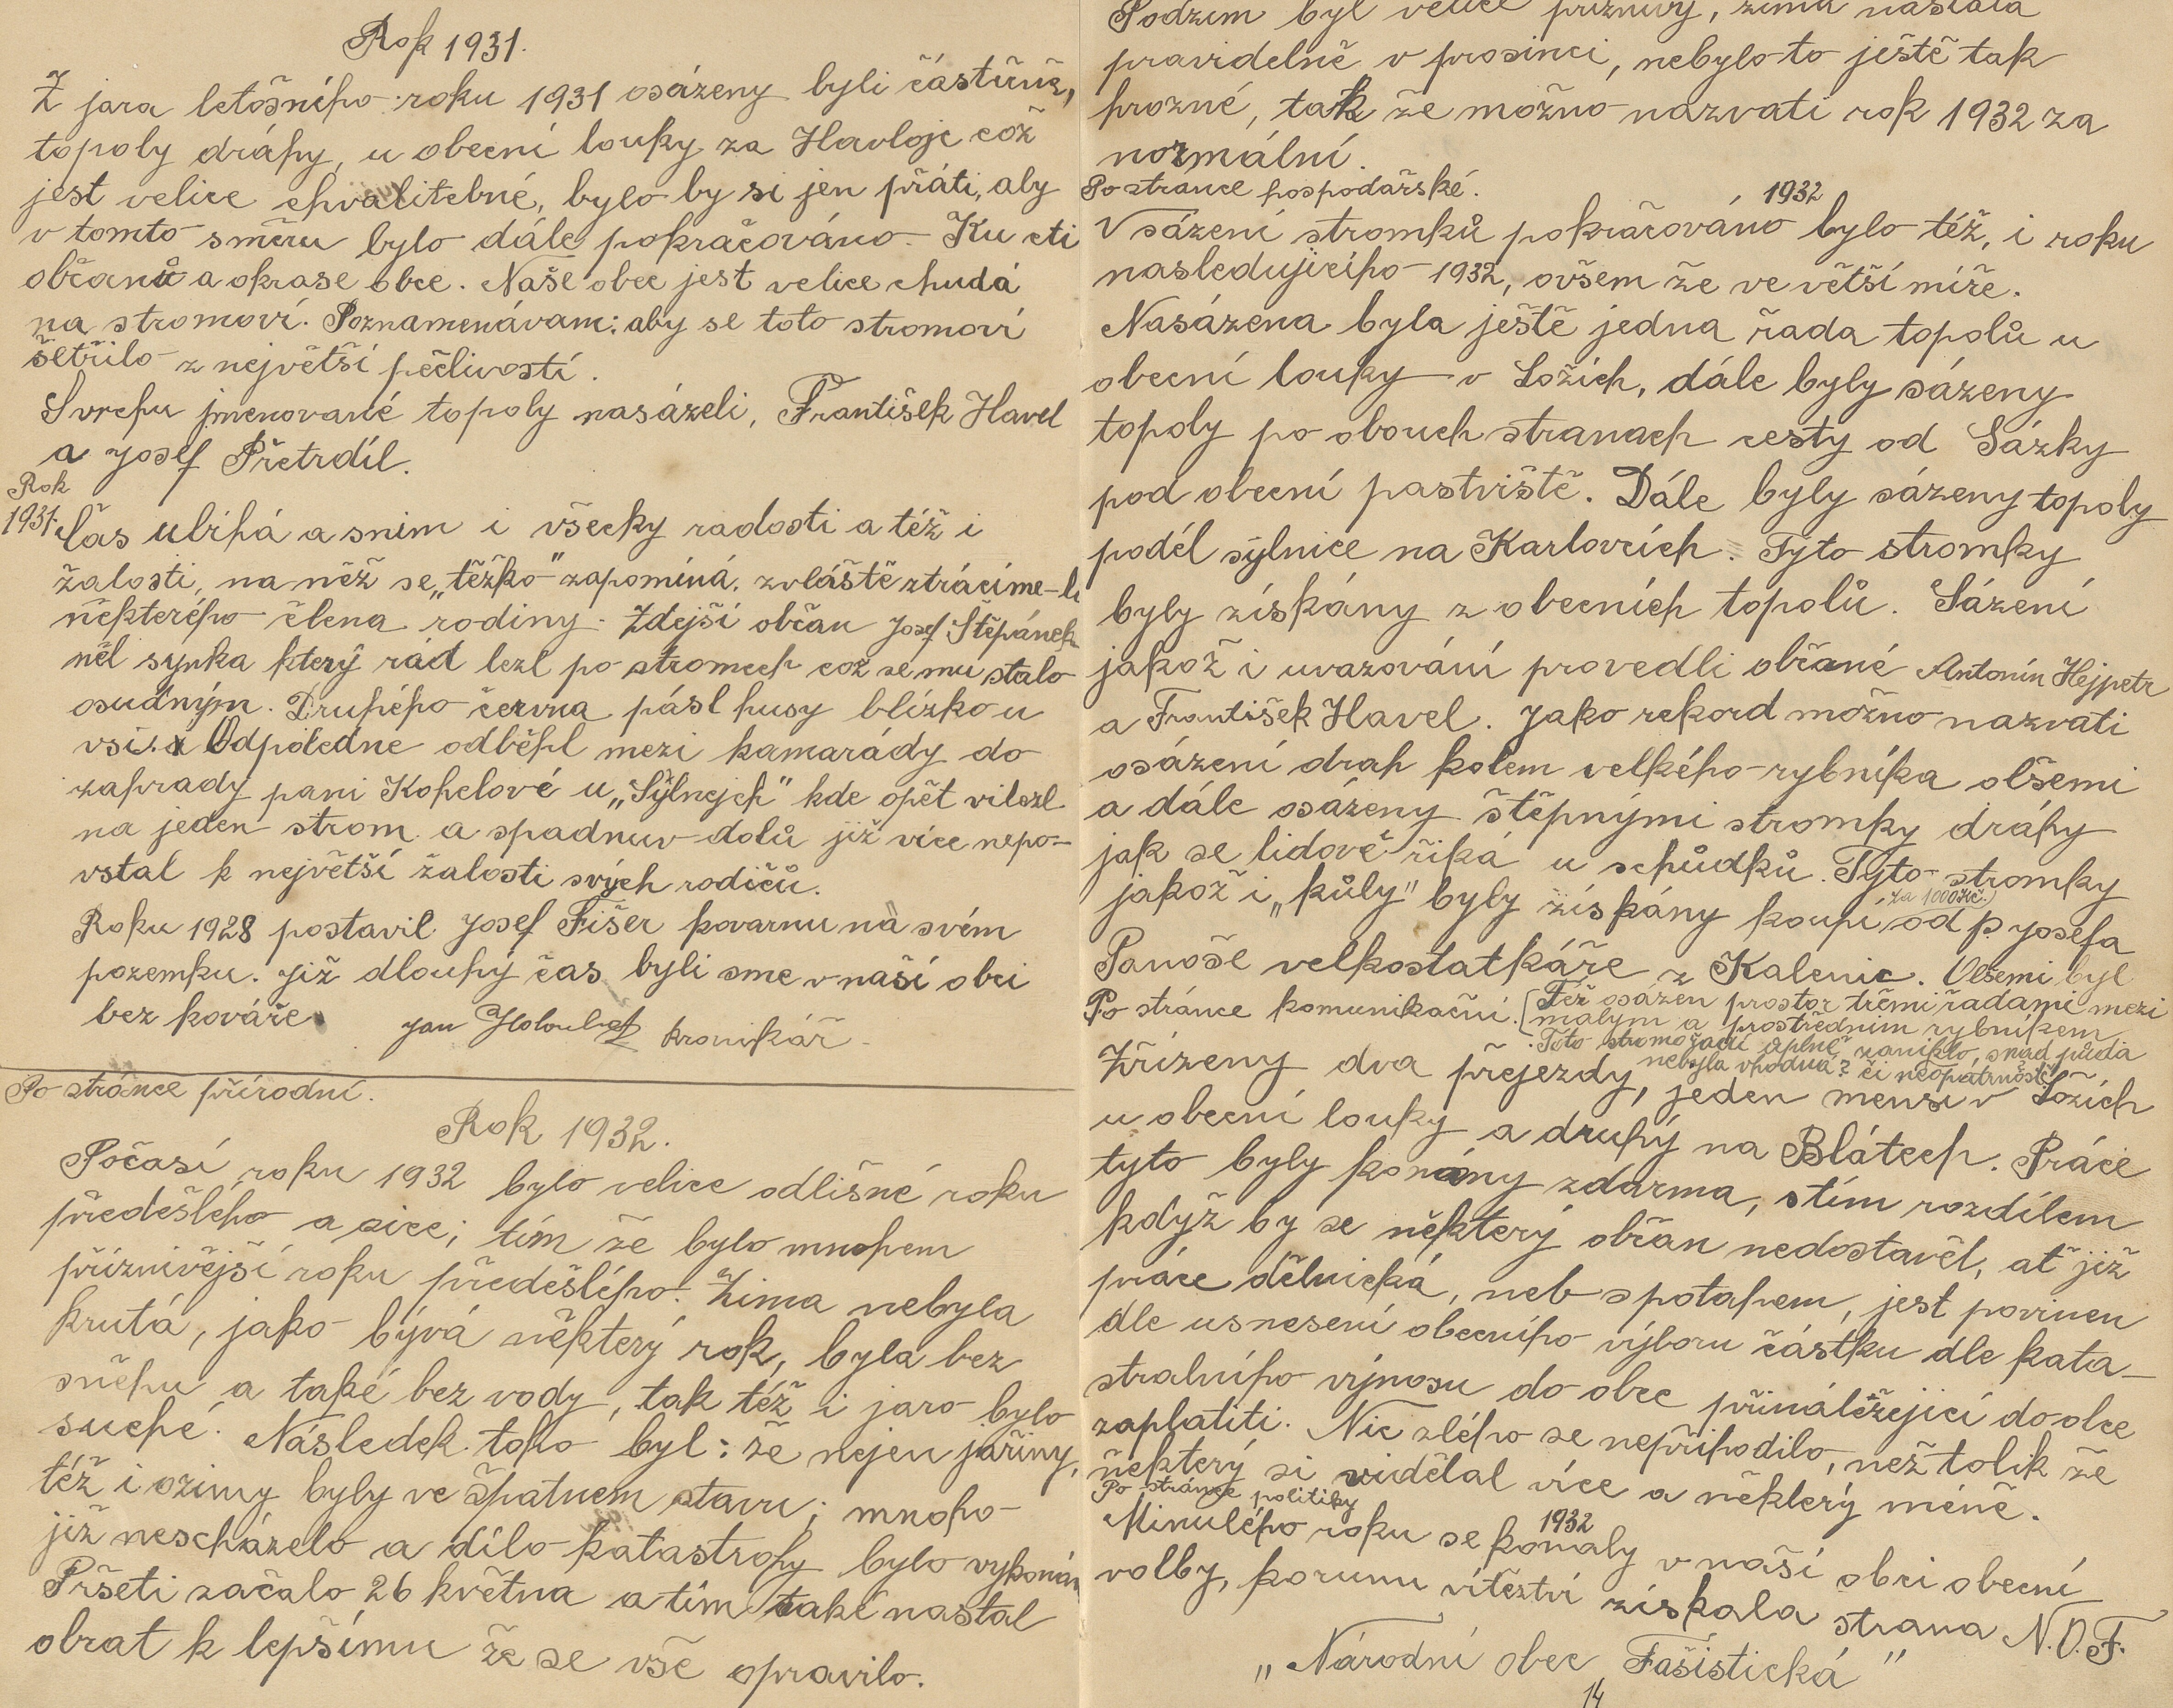 Rok 1931.
Z jara letošního roku 1931 osázeny byli částčně,
topoly dráhy, u obecní louky za Havloje což
jest velice chvalitebné, bylo by si jen přáti, aby
v tomto směru bylo dále pokračováno. Ku cti
občanů a okrase obce. Naše obec jest velice chudá
na stromoví. Poznamenávam: aby se toto stromoví
šetřilo z největší pečlivostí.
Svrchu jmenované topoly nasázeli, František Havel
a Josef Přetrdíl.
Rok
1931.
Čas ubíhá a sním i všecky radosti a též i
žalosti, na něž se „těžko" zapomíná. zvláště ztrácíme-li
některého člena rodiny. Zdejší občan Josef Štěpánek
měl synka který rád lezl po stromech což se mu stalo
osudným. Druhého června pásl husy blízko u
vsi. Odpoledne odběhl mezi kamarády do
zahrady pani Kohelové u „Sýlnejch" kde opět vilezl
na jeden strom a spadnuv dolů již více nepo-
vstal k největší žalosti svých rodičů.
Roku 1928 postavil Josef Fišer kovarnu na svém
pozemku. Již dlouhý čas byli sme v naší obci
bez kováře.
Jan Holoubek kronikář.
Po stránce přírodní.
Rok 1932.
Počasí roku 1932 bylo velice odlišné roku
předešlého a sice; tím že bylo mnohem
příznivější roku předešlého. Zima nebyla
krutá, jako bývá některý rok, byla bez
sněhu a také bez vody, tak též i jaro bylo
suché. Následek toho byl: že nejen jařiny,
též i ozimy byly ve špatnem stavu; mnoho
již nescházelo a dílo katastrofy bylo vykonán
Pršeti začalo 26 května a tím také nastal
obrat k lepšímu že se vše opravilo.
Podzim byl velice příznivý, zima nastala
pravidelně v prosinci, nebylo to ještě tak
hrozné, tak že možno nazvati rok 1932 za
normální.
Po stránce hospodářské.
1932
V sázení stromků pokračováno bylo též, i roku
nasledujicího 1932, ovšem že ve větší míře.
Nasázena byla ještě jedna řada topolů u
obecní louky v Ložích, dále byly sázeny
topoly po obouch stranach cesty od Sázky
pod obecní pastviště. Dále byly sázeny topoly
podél sýlnice na Karlovcích. Tyto stromky
byly získány z obecních topolů. Sázení
jakož i uvazování provedli občané Antonín Hejpetr
a František Havel. Jako rekord možno nazvati
osázení drah kolem velkého rybníka olšemi
a dále osázeny štěpnými stromky dráhy
jak se lidově řiká u schůdků. Tyto stromky
za 1000Kč.)
jakož i „kůly" byly získány koupí od p Josefa
Panoše velkostatkáře z Kalenic. Olšemi byl
Po stránce komunikační. [Též osázen prostor třemi řadami mezi
malým a prostředním rybníkem
Toto stromořadí úplně zaniklo, snad půda
nebyla vhodná? či neopatrnosti
Zřízeny dva přejezdy, jeden menší v Ložích
u obecní louky a druhý na Blátech. Práce
tyto byly konány zdarma, stím rozdílem
když by se některý občan nedostavěl, ať již
práce dělnická, neb s potahem, jest povinen
dle usnesení obecního výboru částku dle kata-
stralního výnosu do obce přináležejicí do obce
zaplatiti. Nic zlého se nepřihodilo, než tolik že
některý si vidělal více a některý méně.
Po stránce politiky
1932
Minulého roku se konaly v naší obci obecní
volby, korunu vítězství získala strana N.O.F.
„Národní obec Fašistická"
14